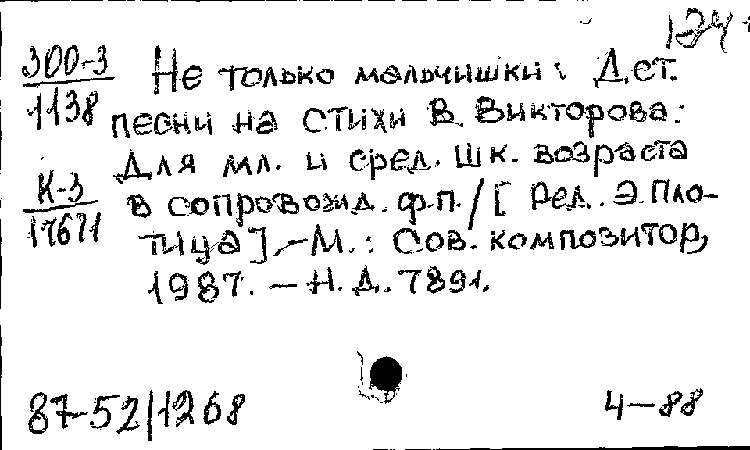 ЗОО-3
1138
К-3
17671
Не только мальчишки: Д.ст.
песни на стихи В. Викторова:
Для мл. и сред. шк. возраста
в сопровожд. ф.п. / [Ред. Э. Пло-
тица]. – М.: Сов. композитор,
1987. – Н.Д. 7891.
87-52/1268
4-88